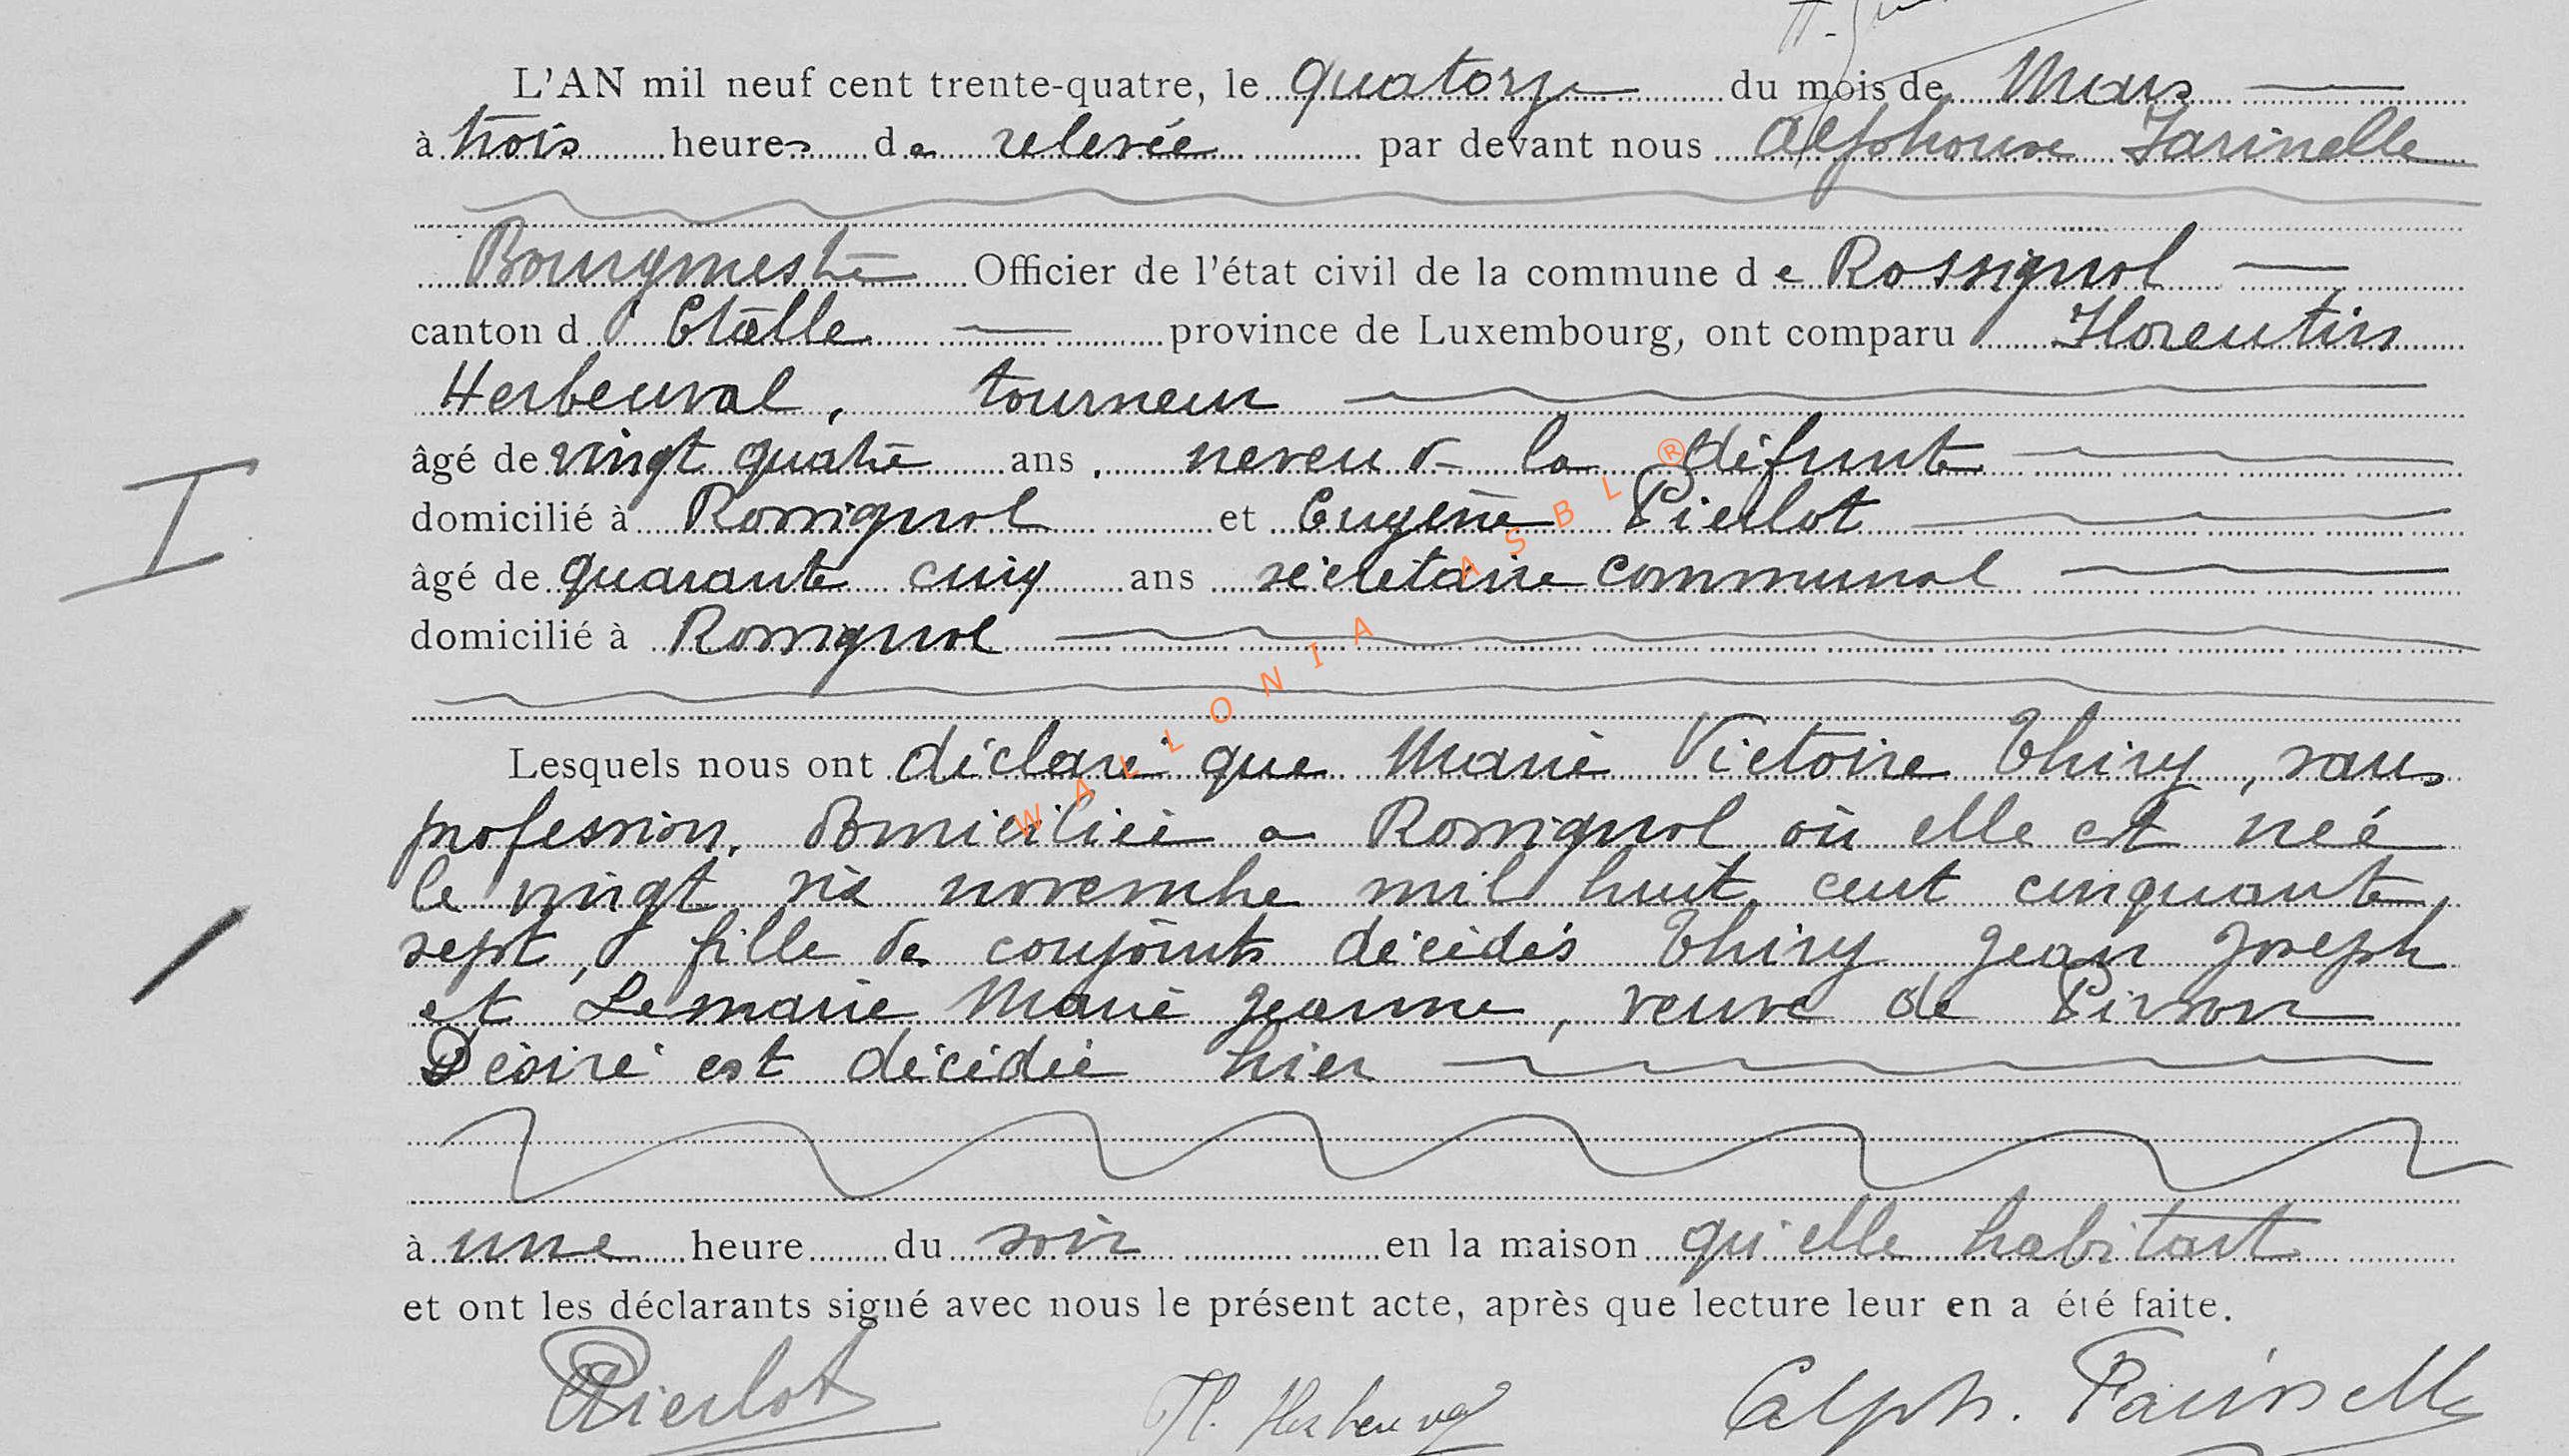 L'AN mil neuf cent trente-quatre, le quatorze du mois de Mars
à trois heures de relevée par devant nous Alphonse Farinelle
Bourgmestre Officier de l'état civil de la commune de Rossignol
canton d' Etalle province de Luxembourg, ont comparu Florentin
Herbeuval, tourneur
âgé de vingt quatre ans, neveu de la défunte
domicilié à Rossignol et Eugène Pierlot
âgé de quarante cinq ans secrétaire communal
domicilié à Rossignol
Lesquels nous ont déclaré que Marie Victoire Thiry, sans
profession, domiciliée à Rossignol où elle est née
le vingt six novembre mil huit cent cinquante
sept, fille de conjoints décédés Thiry Jean Joseph
et Lemaire Marie Jeanne, veuve de Pirson
Désiré est décédée hier
à une heure du soir en la maison qu'elle habitait
et ont les déclarants signé avec nous le présent acte, après que lecture leur en a été faite.
EPierlot Fl. Herbeuval Alph. Farinelle
WALLONIA ASBL ®